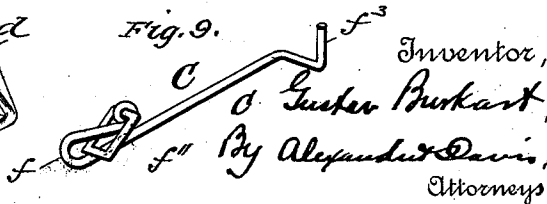 d
Fig. 9.
f³
Inventor,
C
C Gustav Burkart,
f f" By Alexander & Davis,
Attorneys